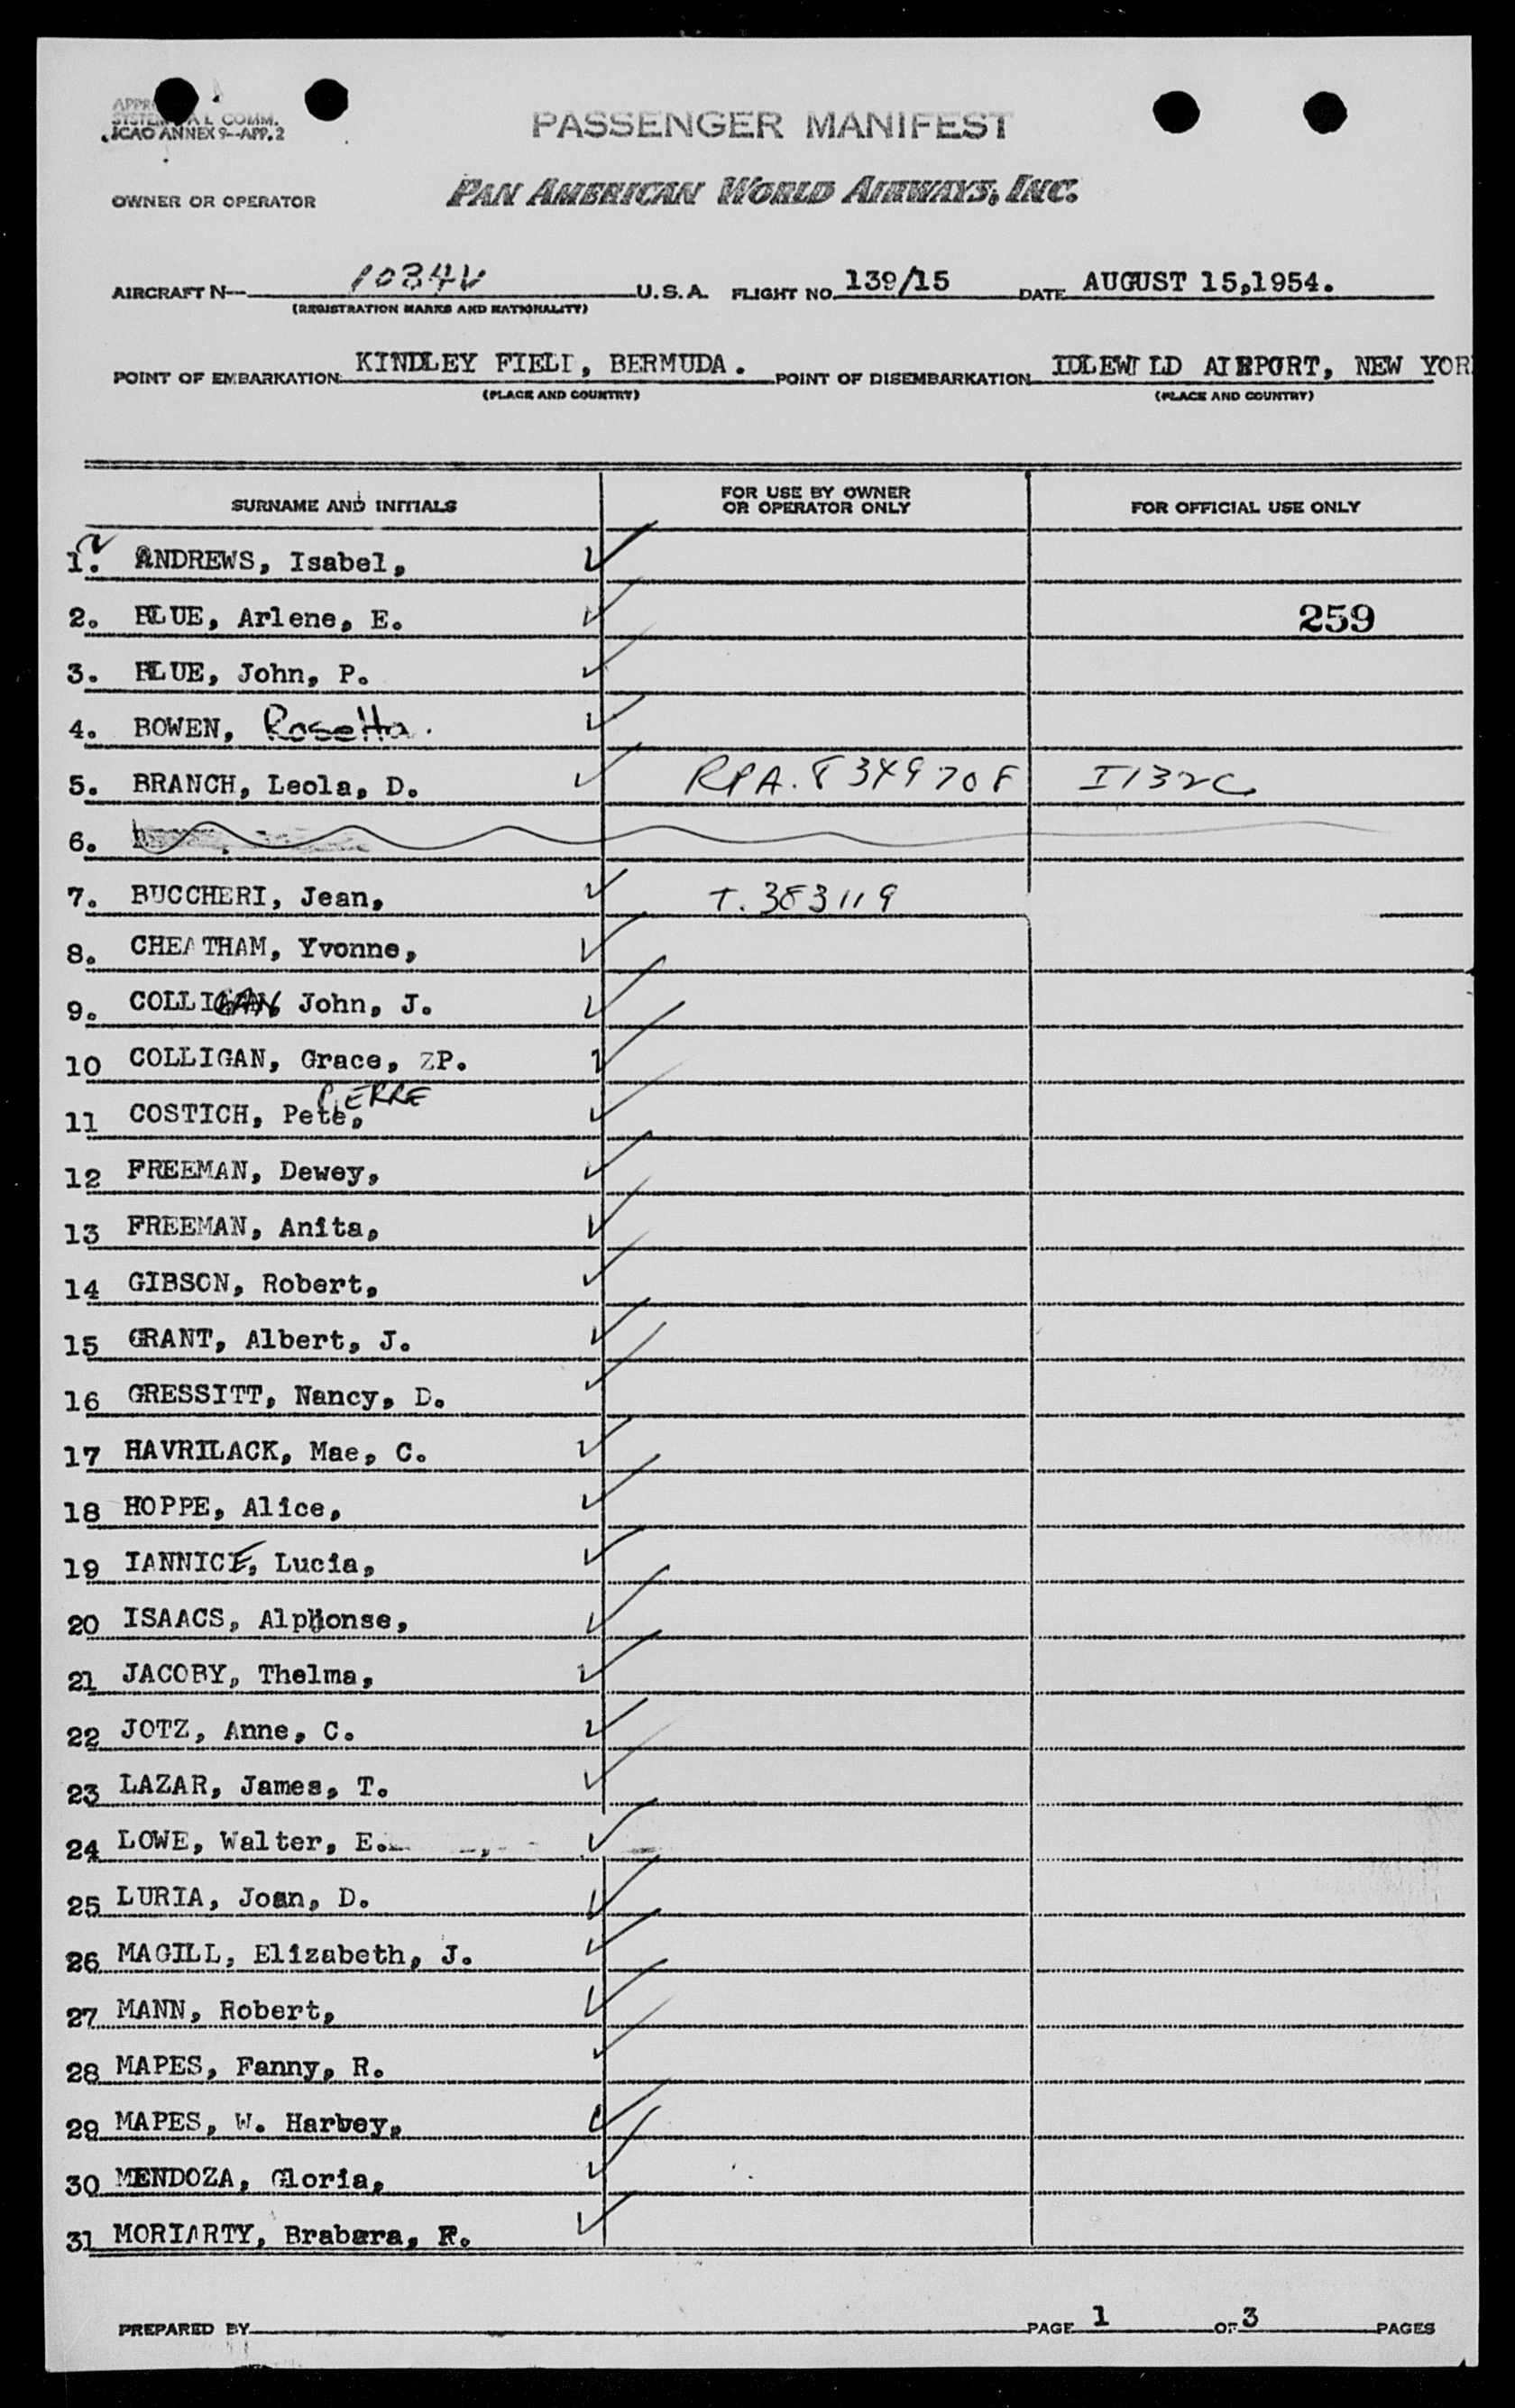 ICAO ANNEX 9--APP. 2
PASSENGER MANIFEST
OWNER OR OPERATOR PAN AMERICAN WORLD AIRWAYS, INC.
AIRCRAFT N— 1034V U.S.A. FLIGHT NO. 139/15 DATE AUGUST 15,1954.
(REGISTRATION MARKS AND NATIONALITY)
POINT OF EMBARKATION KINDLEY FIELD, BERMUDA. POINT OF DISEMBARKATION IDLEWILD AIRPORT, NEW YOR
(PLACE AND COUNTRY) (PLACE AND COUNTRY)
SURNAME AND INITIALS FOR USE BY OWNER OR OPERATOR ONLY FOR OFFICIAL USE ONLY
1. ANDREWS, Isabel,
2. BLUE, Arlene, E. 259
3. BLUE, John, P.
4. BOWEN, Rosetta.
5. BRANCH, Leola, D. RPA. 8349708 I132C
6.
7. BUCCHERI, Jean, T. 383119
8. CHEATHAM, Yvonne,
9. COLLIGAN, John, J.
10 COLLIGAN, Grace, ZP.
11 COSTICH, Pete, PIERRE
12 FREEMAN, Dewey,
13 FREEMAN, Anita,
14 GIBSON, Robert,
15 GRANT, Albert, J.
16 GRESSITT, Nancy, D.
17 HAVRILACK, Mae, C.
18 HOPPE, Alice,
19 IANNICE, Lucia,
20 ISAACS, Alphonse,
21 JACOBY, Thelma,
22 JOTZ, Anne, C.
23 LAZAR, James, T.
24 LOWE, Walter, E.
25 LURIA, Joan, D.
26 MAGILL, Elizabeth, J.
27 MANN, Robert,
28 MAPES, Fanny, R.
29 MAPES, W. Harvey,
30 MENDOZA, Gloria,
31 MORIARTY, Brabara, F.
PREPARED BY PAGE 1 OF 3 PAGES